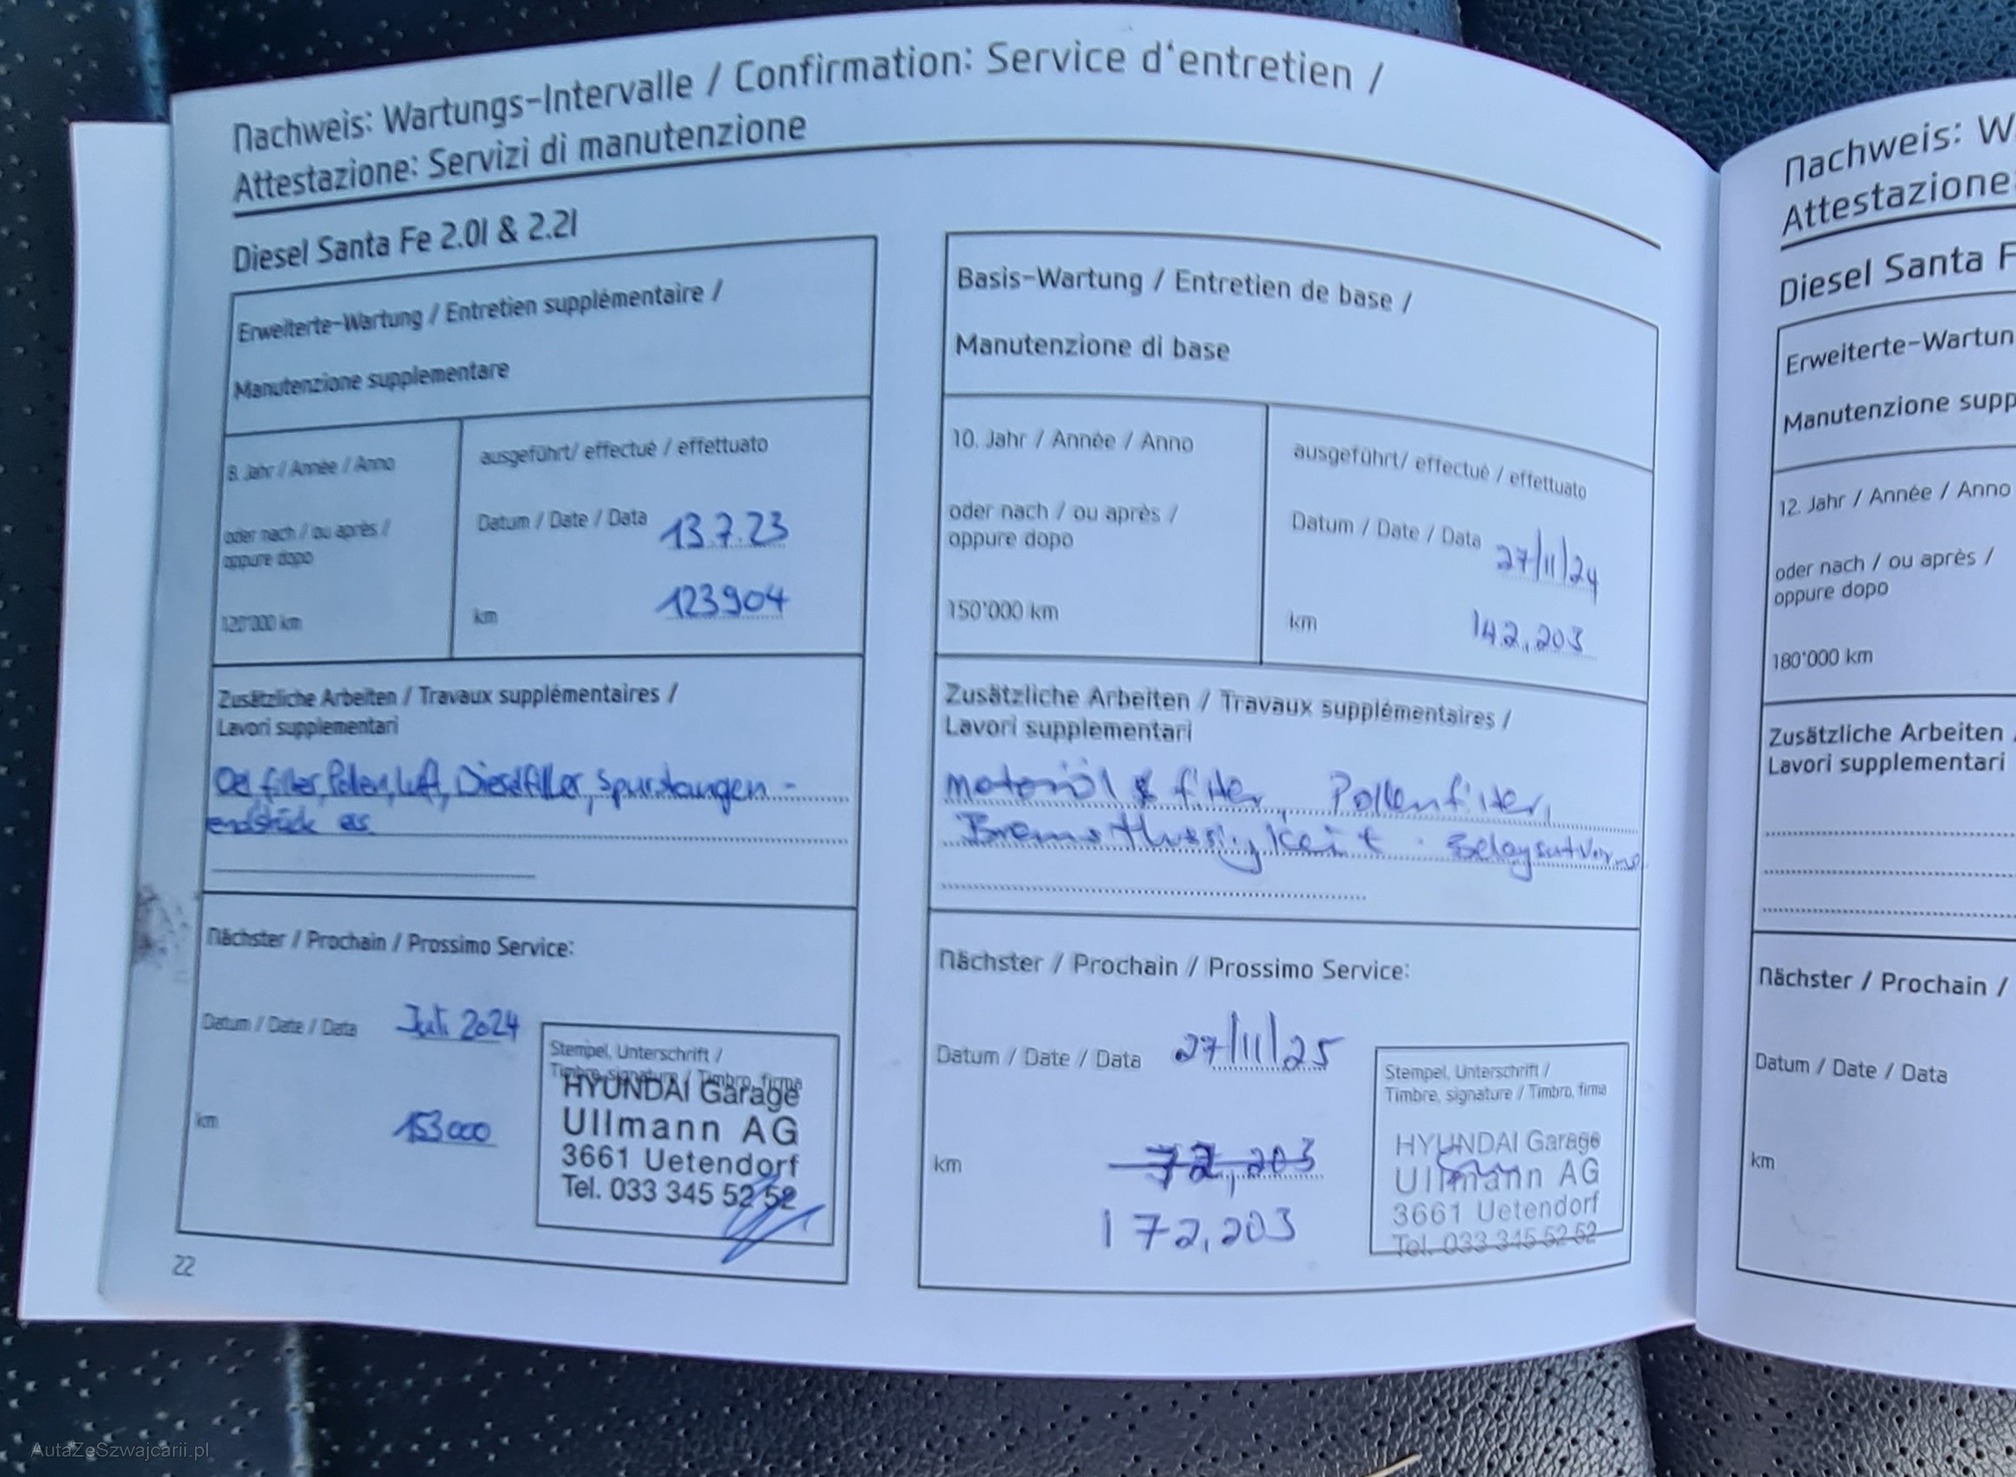 Nachweis: Wartungs-Intervalle / Confirmation: Service d'entretien /
Attestazione: Servizi di manutenzione
Diesel Santa Fe 2.0l & 2.2l
Erweiterte-Wartung / Entretien supplémentaire /
Manutenzione supplementare
8. Jahr / Année / Anno
oder nach / ou après /
oppure dopo
120'000 km
ausgeführt/ effectué / effettuato
Datum / Date / Data 13.7.23
km 123904
Zusätzliche Arbeiten / Travaux supplémentaires /
Lavori supplementari
Oel filter, Pollen, Luft, Dieselfilter, Spurstangen -
endstück
Nächster / Prochain / Prossimo Service:
Datum / Date / Data Juli 2024
km 153000
Stempel, Unterschrift /
Timbre, signature / Timbro, firma
HYUNDAI Garage
Ullmann AG
3661 Uetendorf
Tel. 033 345 52 52
22
Basis-Wartung / Entretien de base /
Manutenzione di base
10. Jahr / Année / Anno
oder nach / ou après /
oppure dopo
150'000 km
ausgeführt/ effectué / effettuato
Datum / Date / Data 27/11/24
km 142,203
Zusätzliche Arbeiten / Travaux supplémentaires /
Lavori supplementari
Motoröl & filter, Pollenfilter,
Bremsflussigkeit
Nächster / Prochain / Prossimo Service:
Datum / Date / Data 27/11/25
km 72,203
172,203
Stempel, Unterschrift /
Timbre, signature / Timbro, firma
HYUNDAI Garage
Ullmann AG
3661 Uetendorf
Tel. 033 345 52 52
Nachweis: W
Attestazione:
Diesel Santa F
Erweiterte-Wartun
Manutenzione supp
12. Jahr / Année / Anno
oder nach / ou après /
oppure dopo
180'000 km
Zusätzliche Arbeiten /
Lavori supplementari
Nächster / Prochain /
Datum / Date / Data
km
AutaZeSzwajcarii.pl